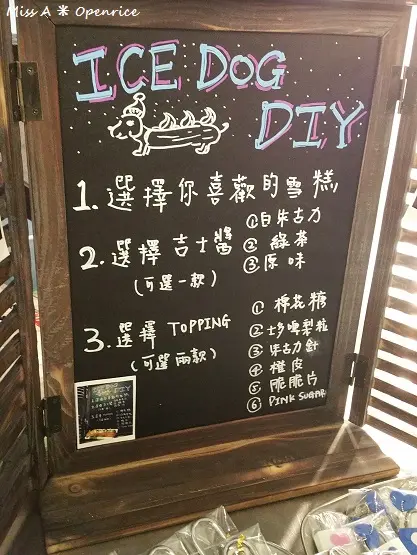 Miss A ※ Openrice
ICE DOG
DIY
1. 選擇你喜歡的雪糕
2. 選擇吉士醬
(可選一款)
① 白朱古力
② 綠茶
③ 原味
3. 選擇 TOPPING
(可選兩款)
① 棉花糖
② 士多啤梨粒
③ 朱古力針
④ 橙皮
⑤ 脆脆片
⑥ PINK SUGAR